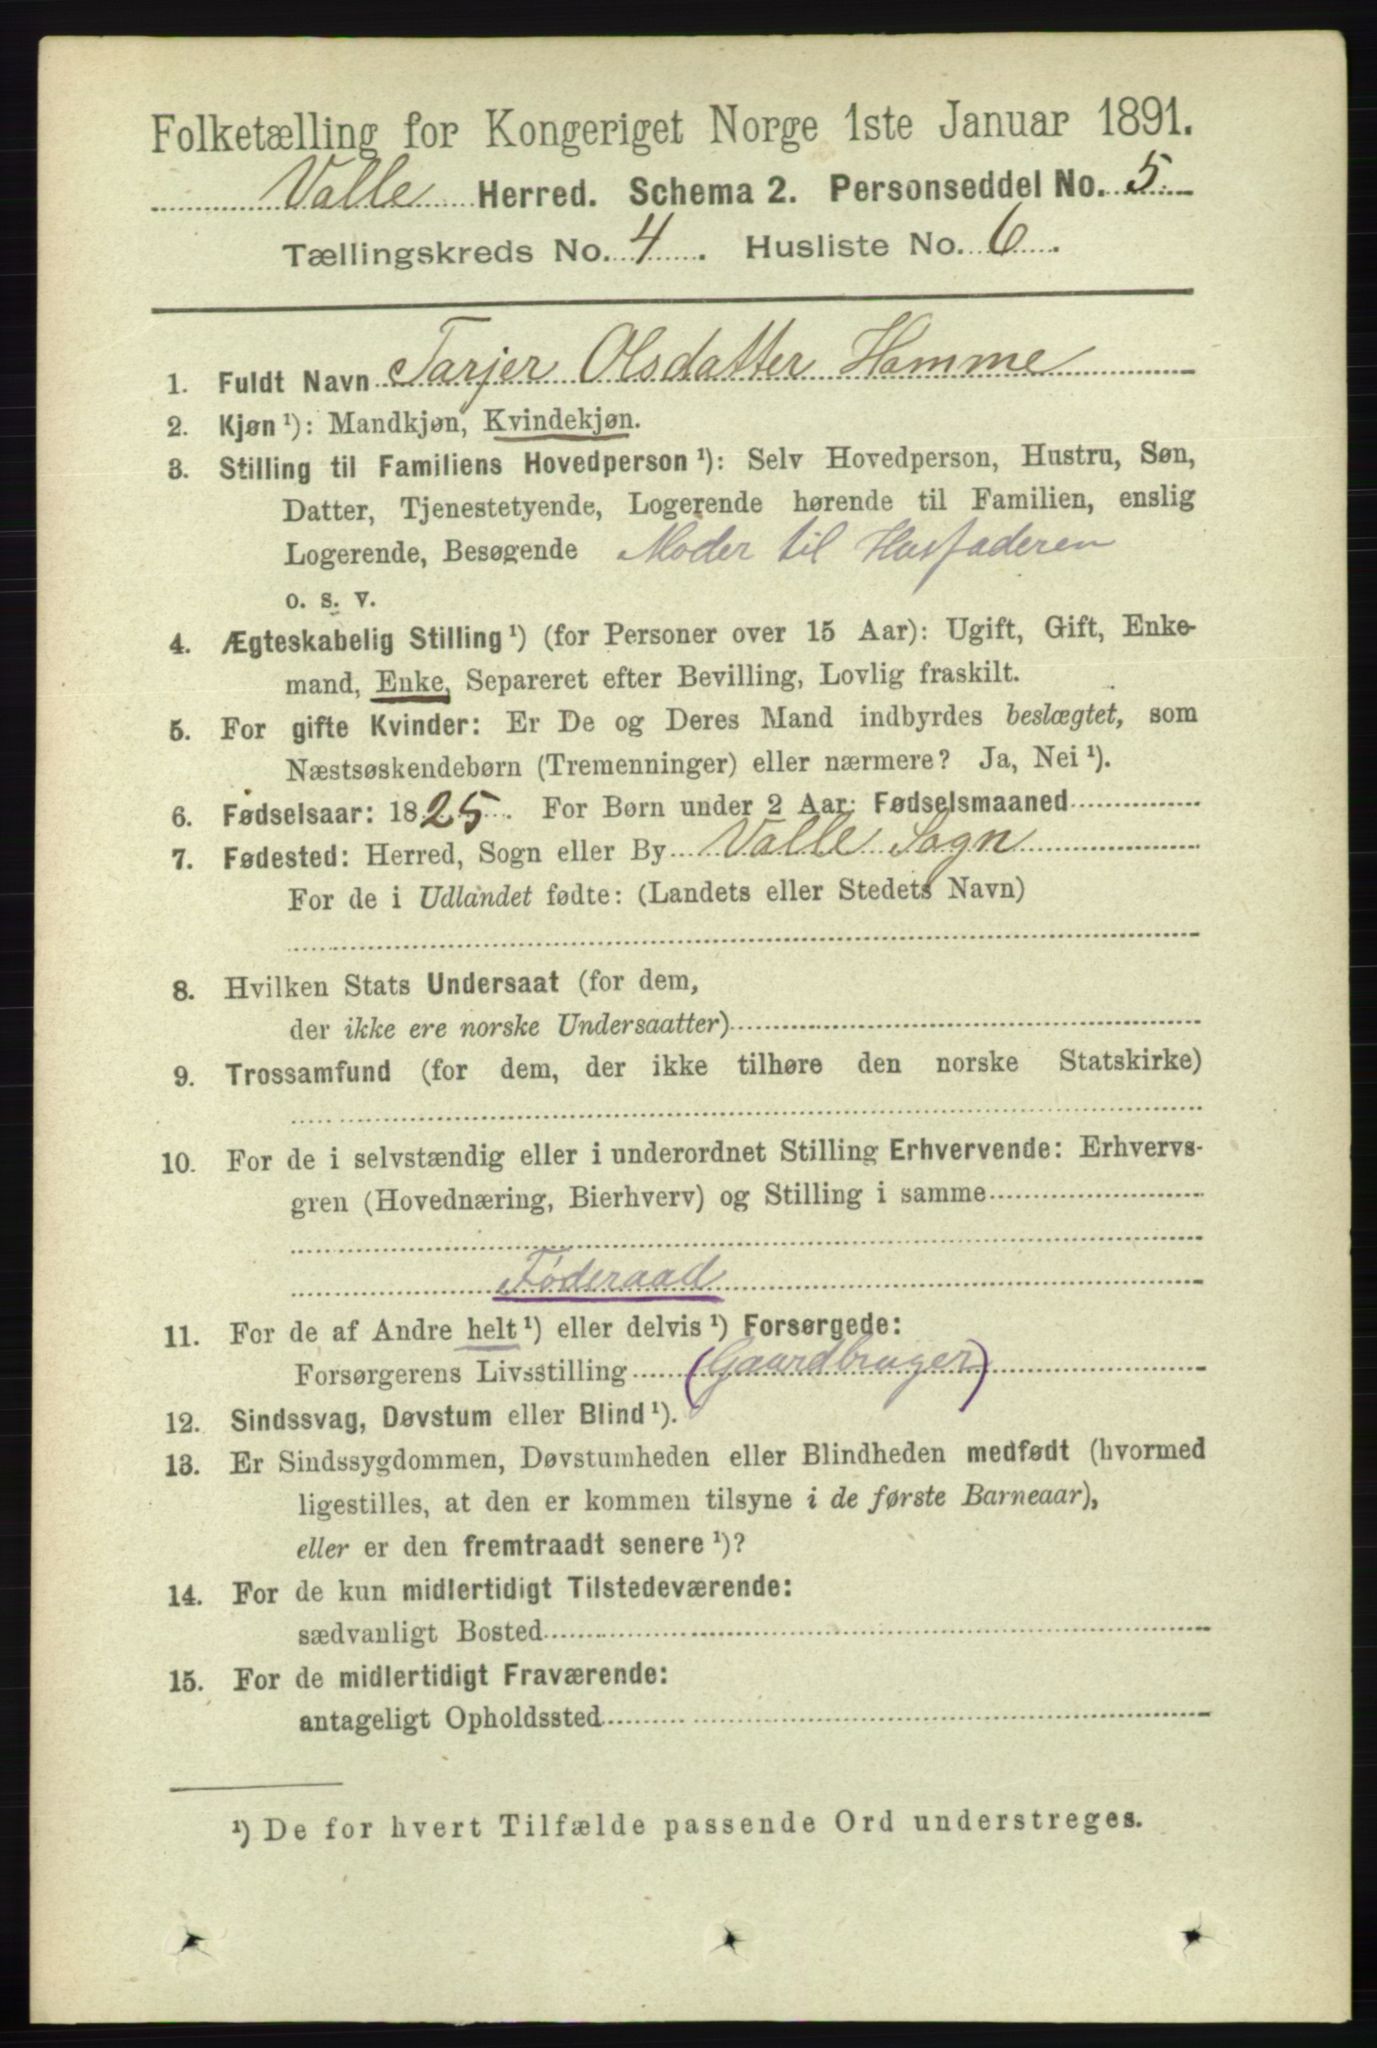 Folketælling for Kongeriget Norge 1ste Januar 1891.
Valle Herred. Schema 2. Personseddel No. 5
Tællingskreds No. 4. Husliste No. 6.
1. Fuldt Navn Tarjer Olsdatter Homme
2. Kjøn ¹): Mandkjøn, Kvindekjøn.
3. Stilling til Familiens Hovedperson ¹): Selv Hovedperson, Hustru, Søn,
Datter, Tjenestetyende, Logerende hørende til Familien, enslig
Logerende, Besøgende Moder til Husfaderen
o. s. v.
4. Ægteskabelig Stilling ¹) (for Personer over 15 Aar): Ugift, Gift, Enke-
mand, Enke, Separeret efter Bevilling, Lovlig fraskilt.
5. For gifte Kvinder: Er De og Deres Mand indbyrdes beslægtet, som
Næstsøskendebørn (Tremenninger) eller nærmere? Ja, Nei ¹).
6. Fødselsaar: 1825. For Børn under 2 Aar: Fødselsmaaned
7. Fødested: Herred, Sogn eller By Valle Sogn
For de i Udlandet fødte: (Landets eller Stedets Navn)
8. Hvilken Stats Undersaat (for dem,
der ikke ere norske Undersaatter)
9. Trossamfund (for dem, der ikke tilhøre den norske Statskirke)
10. For de i selvstændig eller i underordnet Stilling Erhvervende: Erhvervs-
gren (Hovednæring, Bierhverv) og Stilling i samme
Føderaad
11. For de af Andre helt ¹) eller delvis ¹) Forsørgede:
Forsørgerens Livsstilling (Gaardbruger)
12. Sindssvag, Døvstum eller Blind ¹).
13. Er Sindssygdommen, Døvstumheden eller Blindheden medfødt (hvormed
ligestilles, at den er kommen tilsyne i de første Barneaar),
eller er den fremtraadt senere ¹)?
14. For de kun midlertidigt Tilstedeværende:
sædvanligt Bosted
15. For de midlertidigt Fraværende:
antageligt Opholdssted
¹) De for hvert Tilfælde passende Ord understreges.